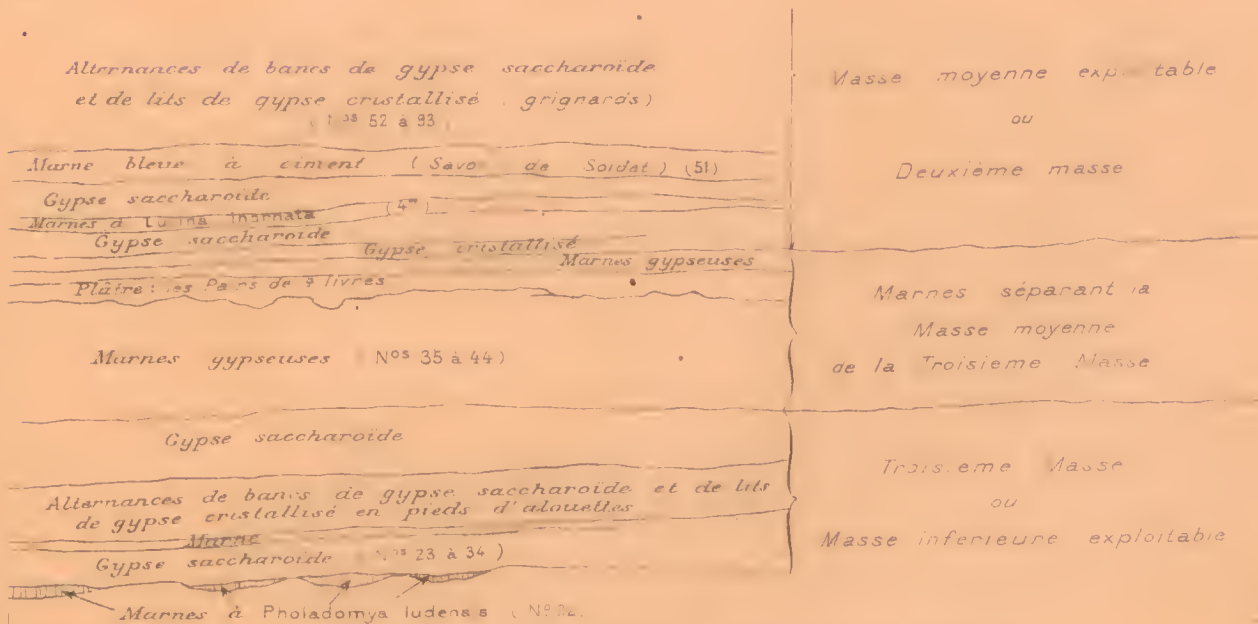 Alternances de bancs de gypse saccharoïde
et de lits de gypse cristallisé (grignards)
(Nos 52 à 93)
Marne bleue à ciment (Savon de Soldat) (51)
Gypse saccharoïde
(4m)
Marnes à Lucina Inornata
Gypse saccharoïde
Gypse cristallisé
Marnes gypseuses
Plâtre: les Pains de 7 livres
Marnes gypseuses (Nos 35 à 44)
Gypse saccharoïde
Alternances de bancs de gypse saccharoïde et de lits
de gypse cristallisé en pieds d'alouettes
Marne
Gypse saccharoïde (Nos 23 à 34)
Marnes à Pholadomya ludensis (No
Masse moyenne exploitable
ou
Deuxième masse
Marnes séparant la
Masse moyenne
de la Troisieme Masse
Troisieme Masse
ou
Masse inferieure exploitable